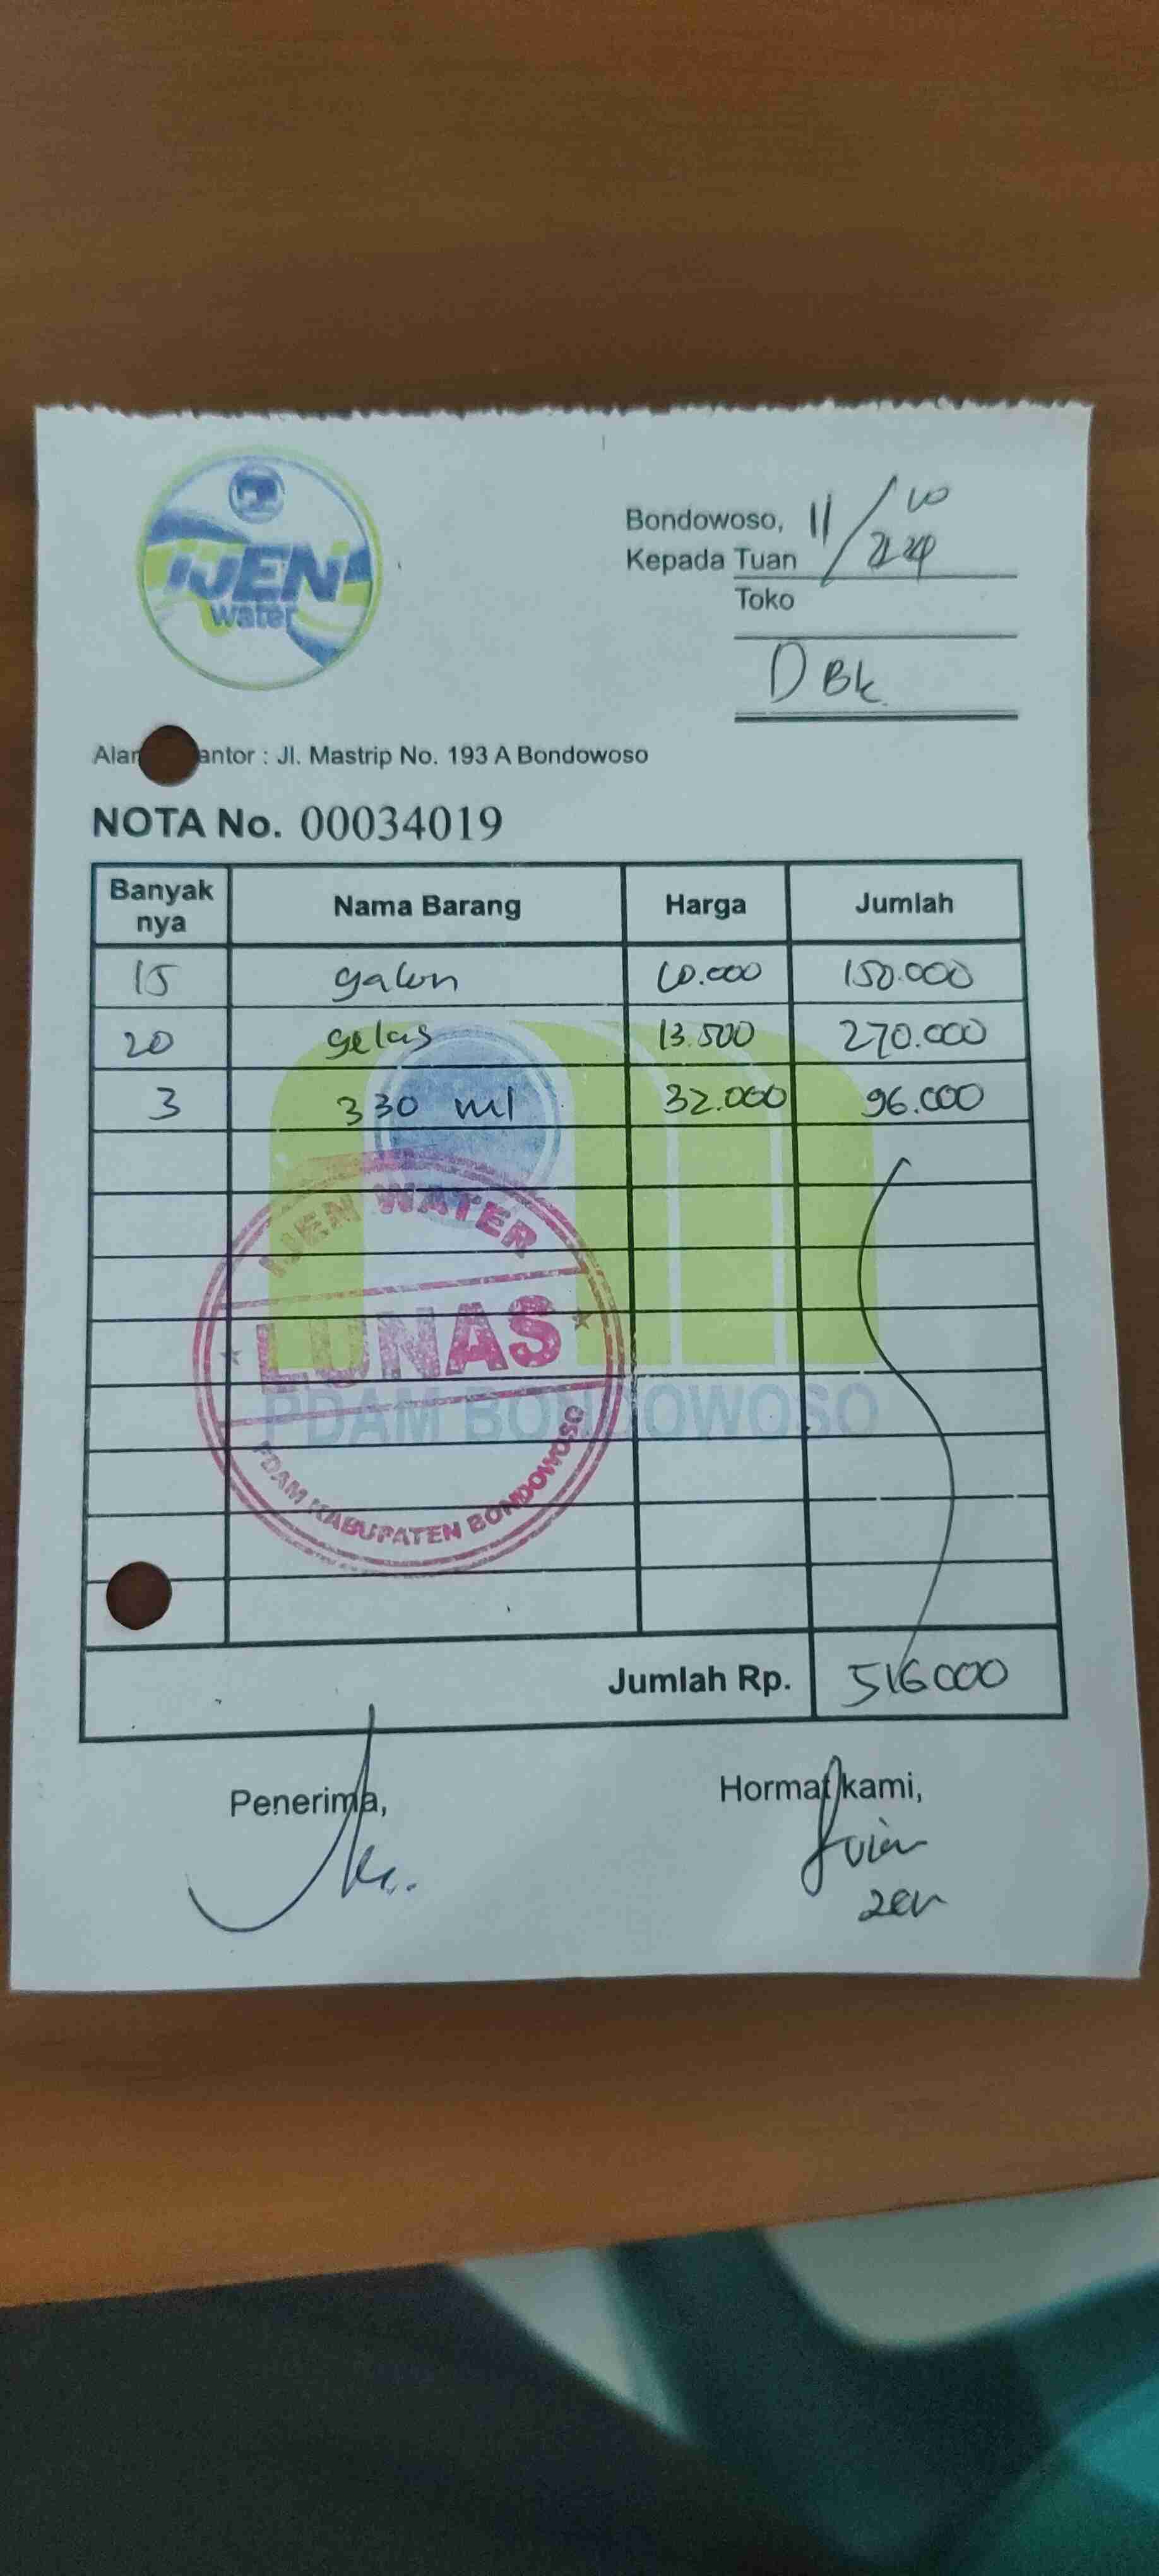 IJEN
water
Bondowoso, 11/10
Kepada Tuan
Toko
DBK
Kantor : Jl. Mastrip No. 193 A Bondowoso
NOTA No. 00034019
Banyak nya Nama Barang Harga Jumlah
15 galon 10.000 150.000
20 gelas 13.500 270.000
3 330 ml 32.000 96.000
IJEN WATER
LUNAS
PDAM BONDOWOSO
PDAM KABUPATEN BONDOWOSO
Jumlah Rp. 516000
Penerima,
Hormat kami,